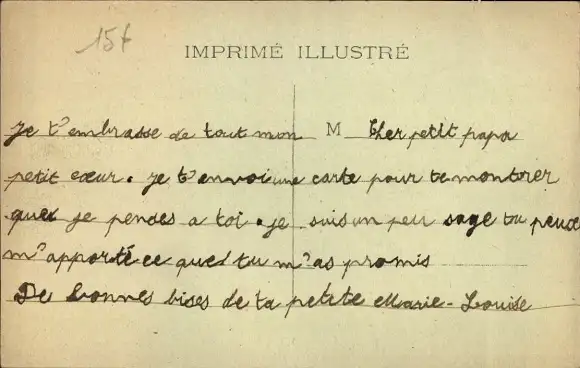 15f
IMPRIMÉ ILLUSTRÉ
Je t'embrasse de tout mon M Cher petit papa
petit cœur. je t'envoi une carte pour te montrer
que je penses a toi. je suis un peu sage tu peux
m'apporté ce que tu m'as promis
De bonnes bises de ta petite Marie-Louise